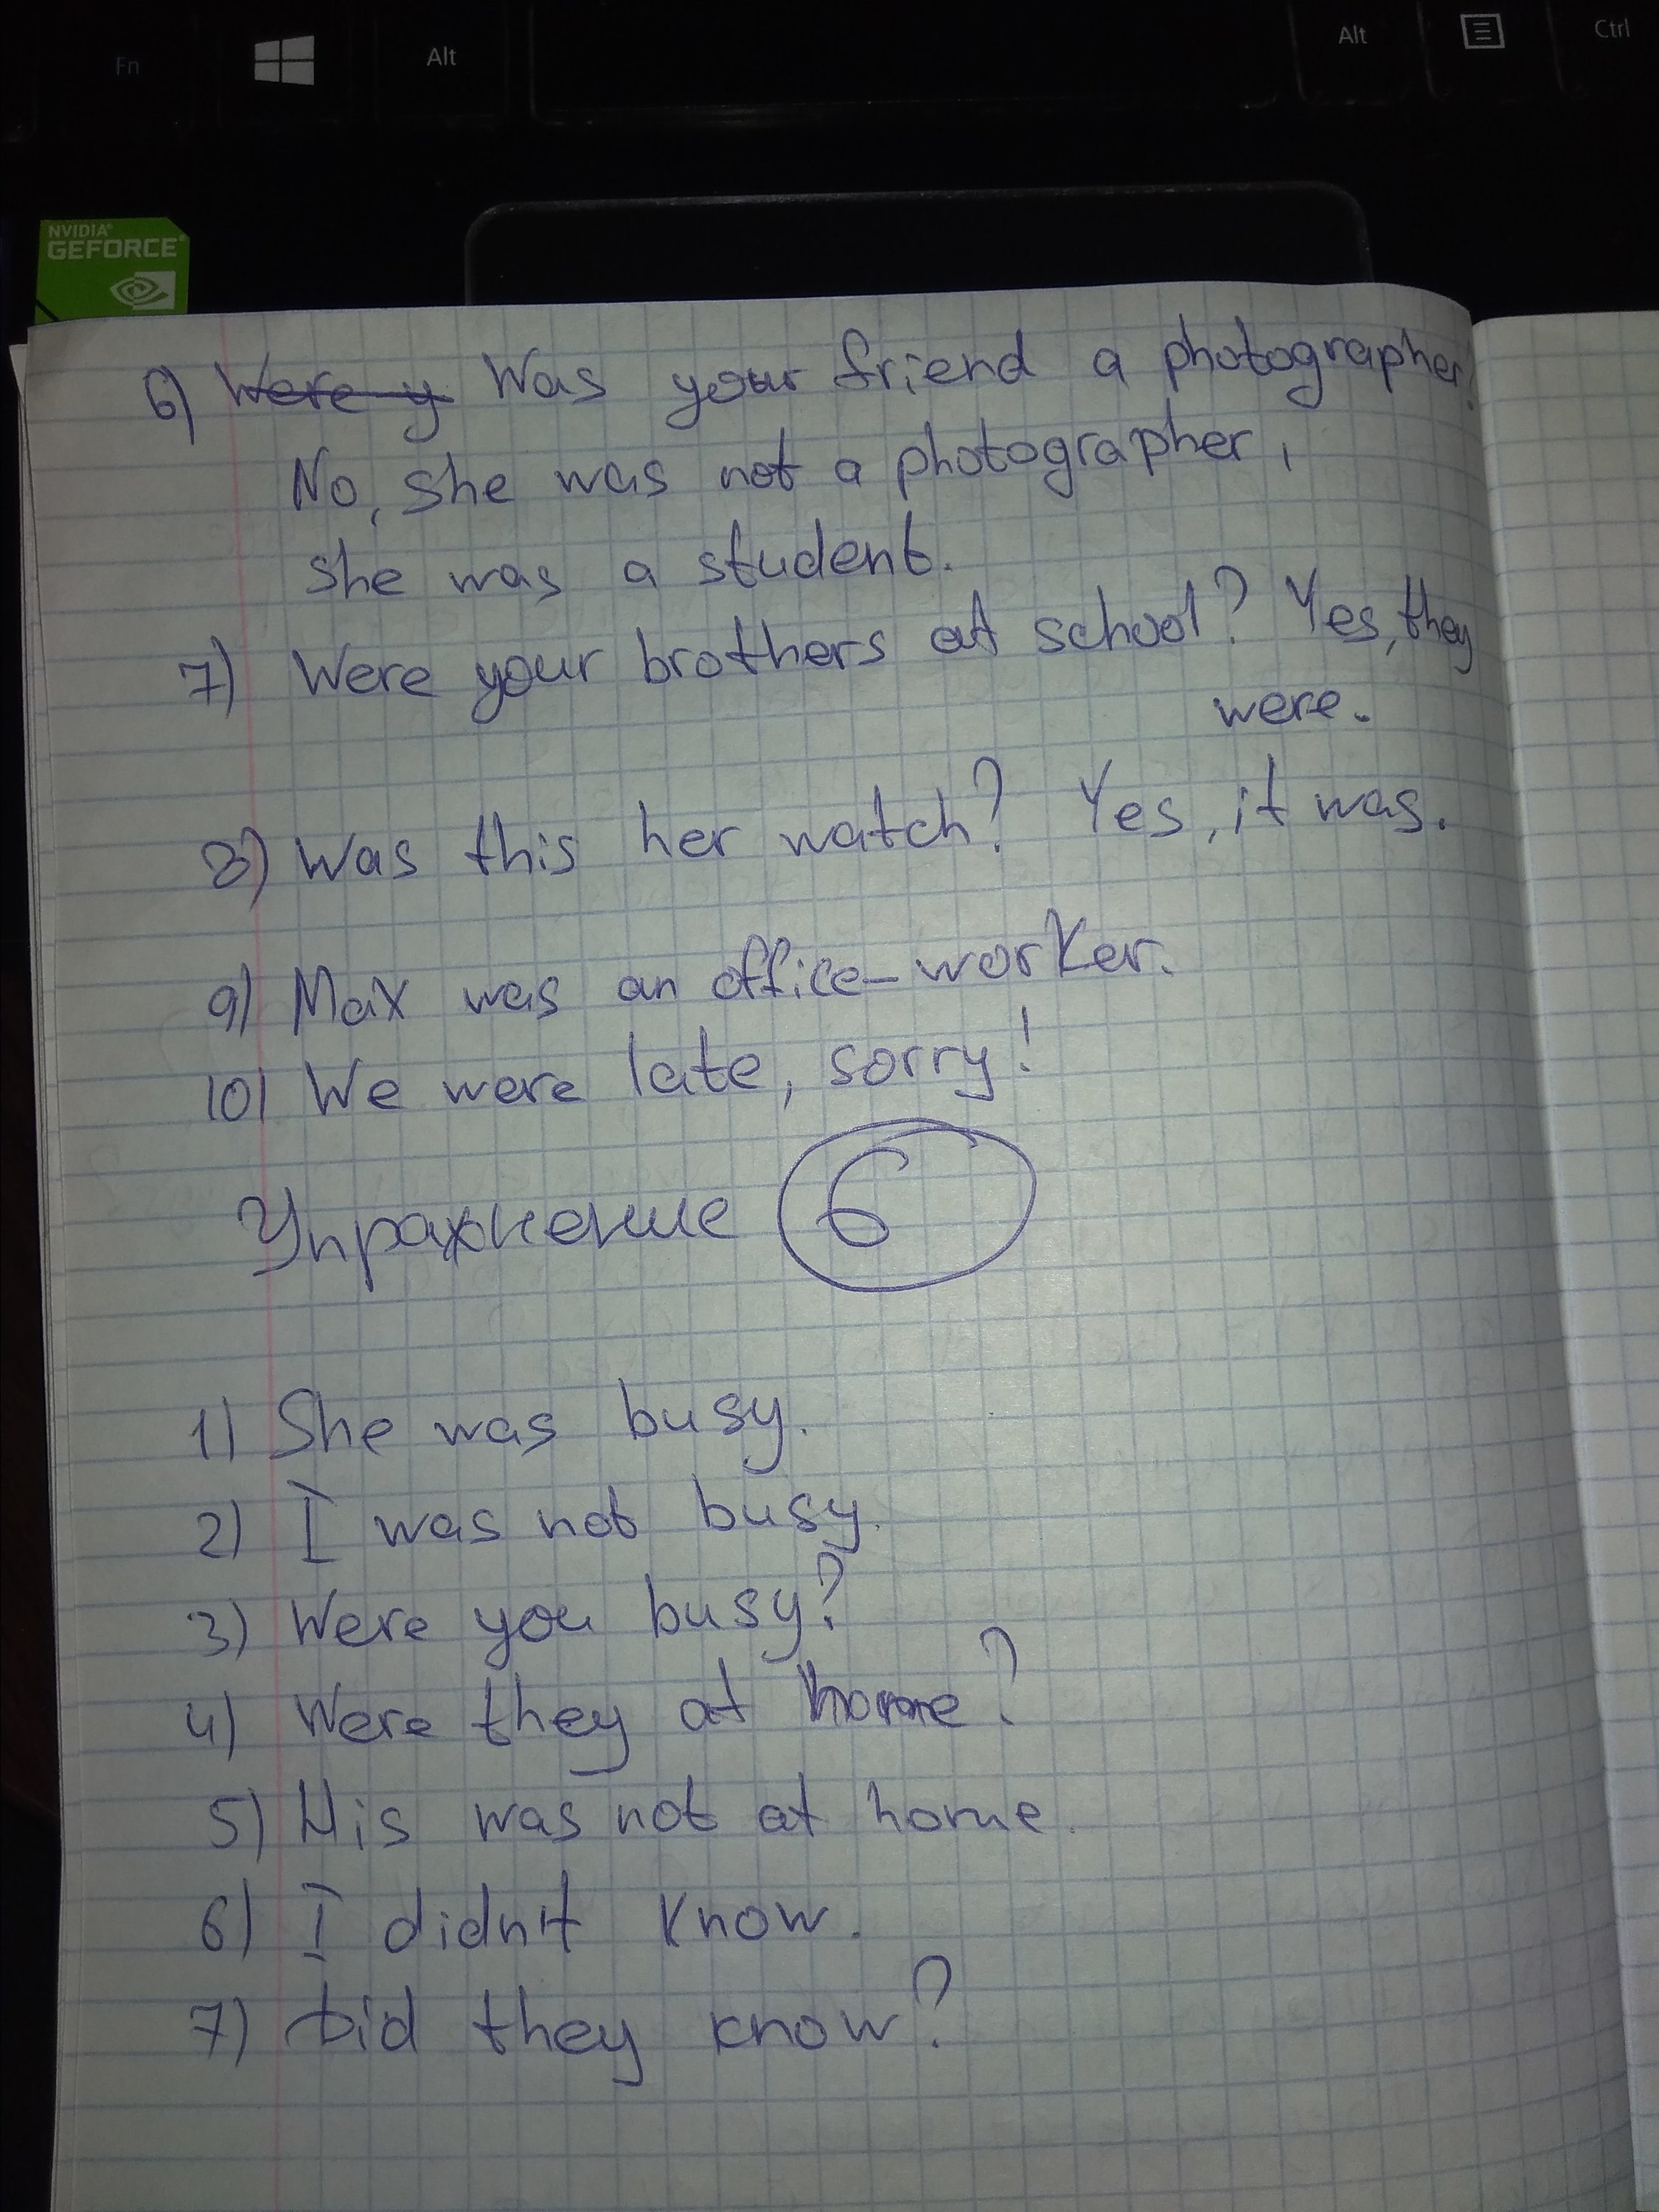 Fn Alt Alt Ctrl
NVIDIA®
GEFORCE®
6) Were y Was your friend a photographer?
No, she was not a photographer,
she was a student.
7) Were your brothers at school? Yes, they
were.
8) Was this her watch? Yes, it was.
9) Max was an office-worker.
10) We were late, sorry!
Упражнение 6
1) She was busy.
2) I was not busy.
3) Were you busy?
4) Were they at home?
5) His was not at home.
6) I didn't know.
7) Did they know?